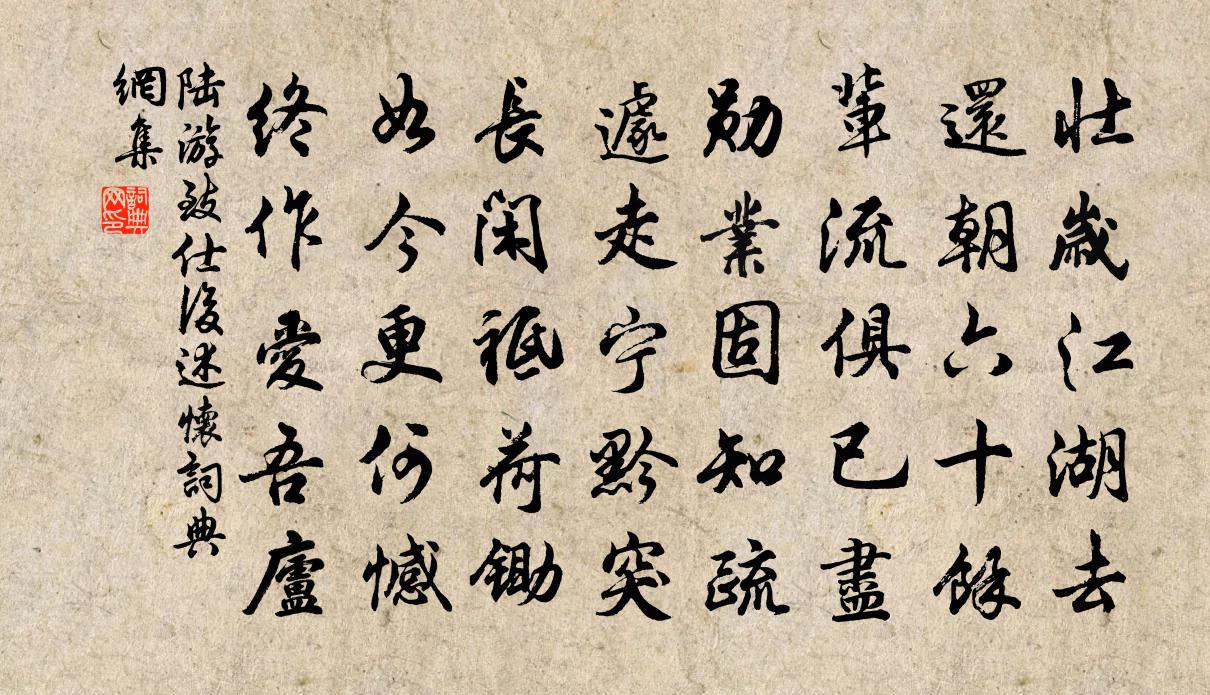 壯歲江湖去
還朝六十餘
輩流俱已盡
勛業固知疏
遽走宁黔突
長閑祗荷鋤
如今更何憾
終作愛吾廬
陸游致仕後述懷詞典
網集
詞典网印